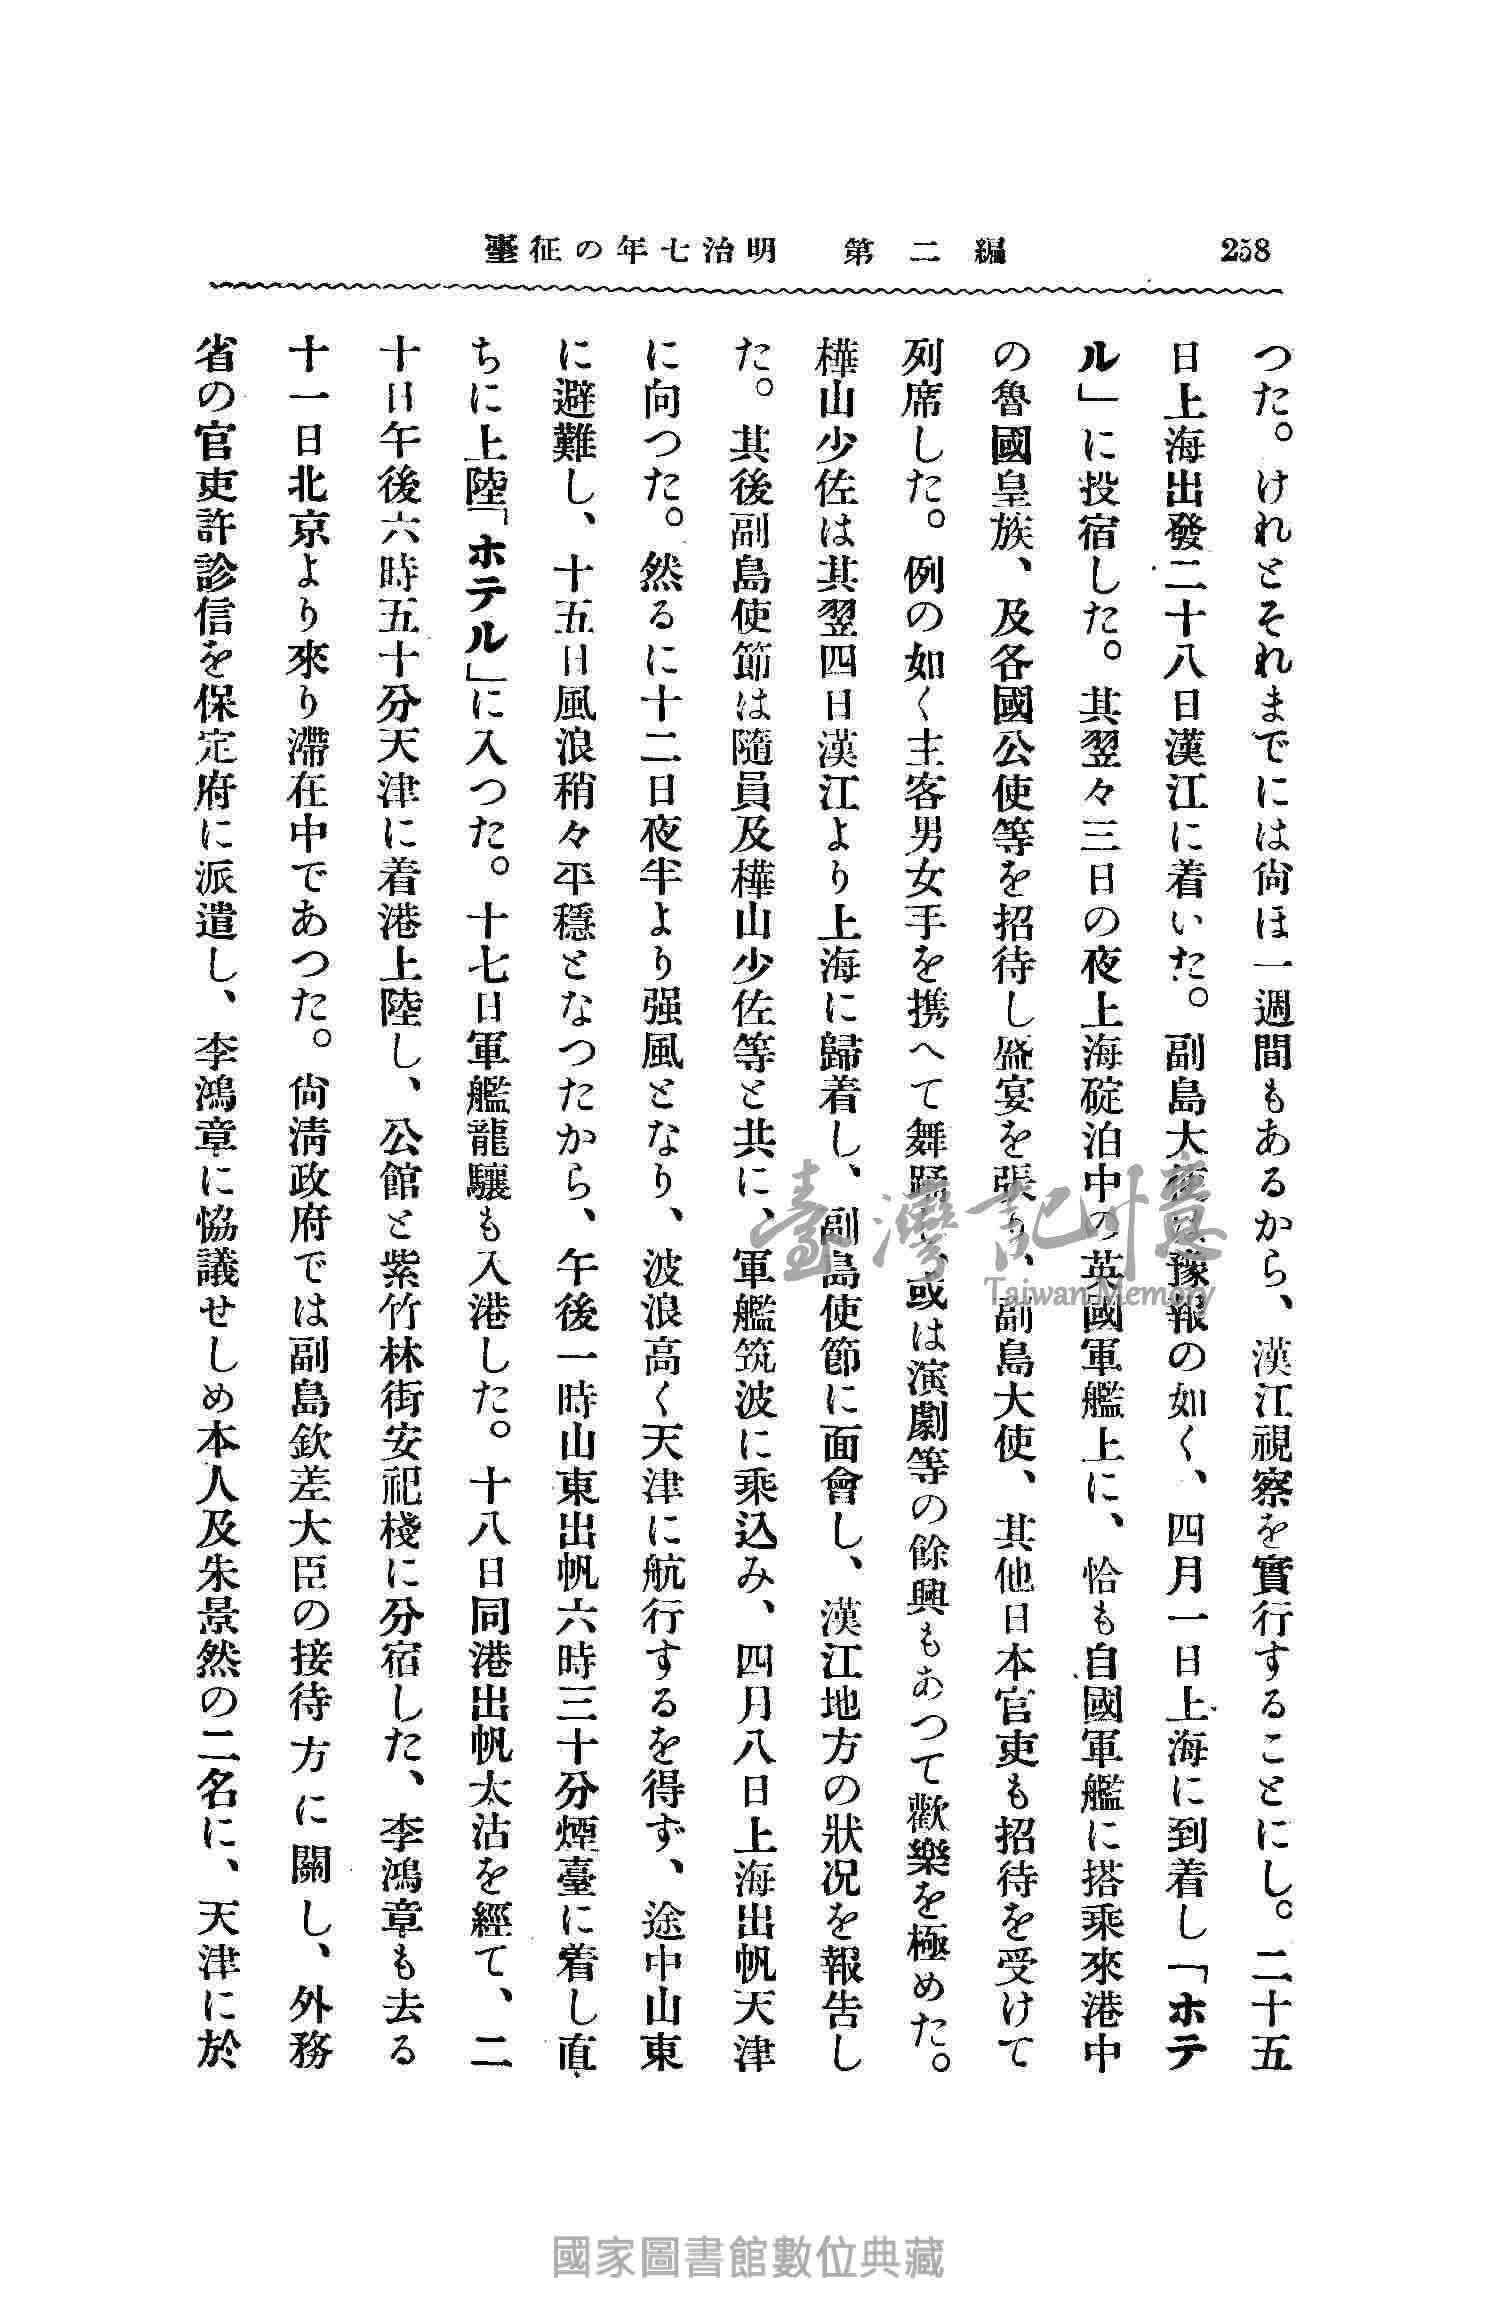 258
第二編 明治七年の征臺
つた。けれとそれまでには尙ほ一週間もあるから、漢江視察を實行することにし。二十五
日上海出發二十八日漢江に着いた。副島大使は豫報の如く、四月一日上海に到着し「ホテ
ル」に投宿した。其翌々三日の夜上海碇泊中の英國軍艦上に、恰も自國軍艦に搭乘來港中
の魯國皇族、及各國公使等を招待し盛宴を張り、副島大使、其他日本官吏も招待を受けて
列席した。例の如く主客男女手を携へて舞踊し、或は演劇等の餘興もあつて歡樂を極めた。
樺山少佐は其翌四日漢江より上海に歸着し、副島使節に面會し、漢江地方の狀况を報告し
た。其後副島使節は隨員及樺山少佐等と共に、軍艦筑波に乘込み、四月八日上海出帆天津
に向つた。然るに十二日夜半より强風となり、波浪高く天津に航行するを得ず、途中山東
に避難し、十五日風浪稍々平穩となつたから、午後一時山東出帆六時三十分煙臺に着し直
ちに上陸「ホテル」に入つた。十七日軍艦龍驤も入港した。十八日同港出帆太沽を經て、二
十日午後六時五十分天津に着港上陸し、公館と紫竹林街安祀棧に分宿した、李鴻章も去る
十一日北京より來り滯在中であつた。尙淸政府では副島欽差大臣の接待方に關し、外務
省の官吏許診信を保定府に派遣し、李鴻章に恊議せしめ本人及朱景然の二名に、天津に於
臺灣記憶
Taiwan Memory
國家圖書館數位典藏